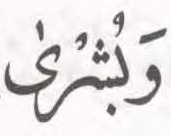 وَبُشْرٰى